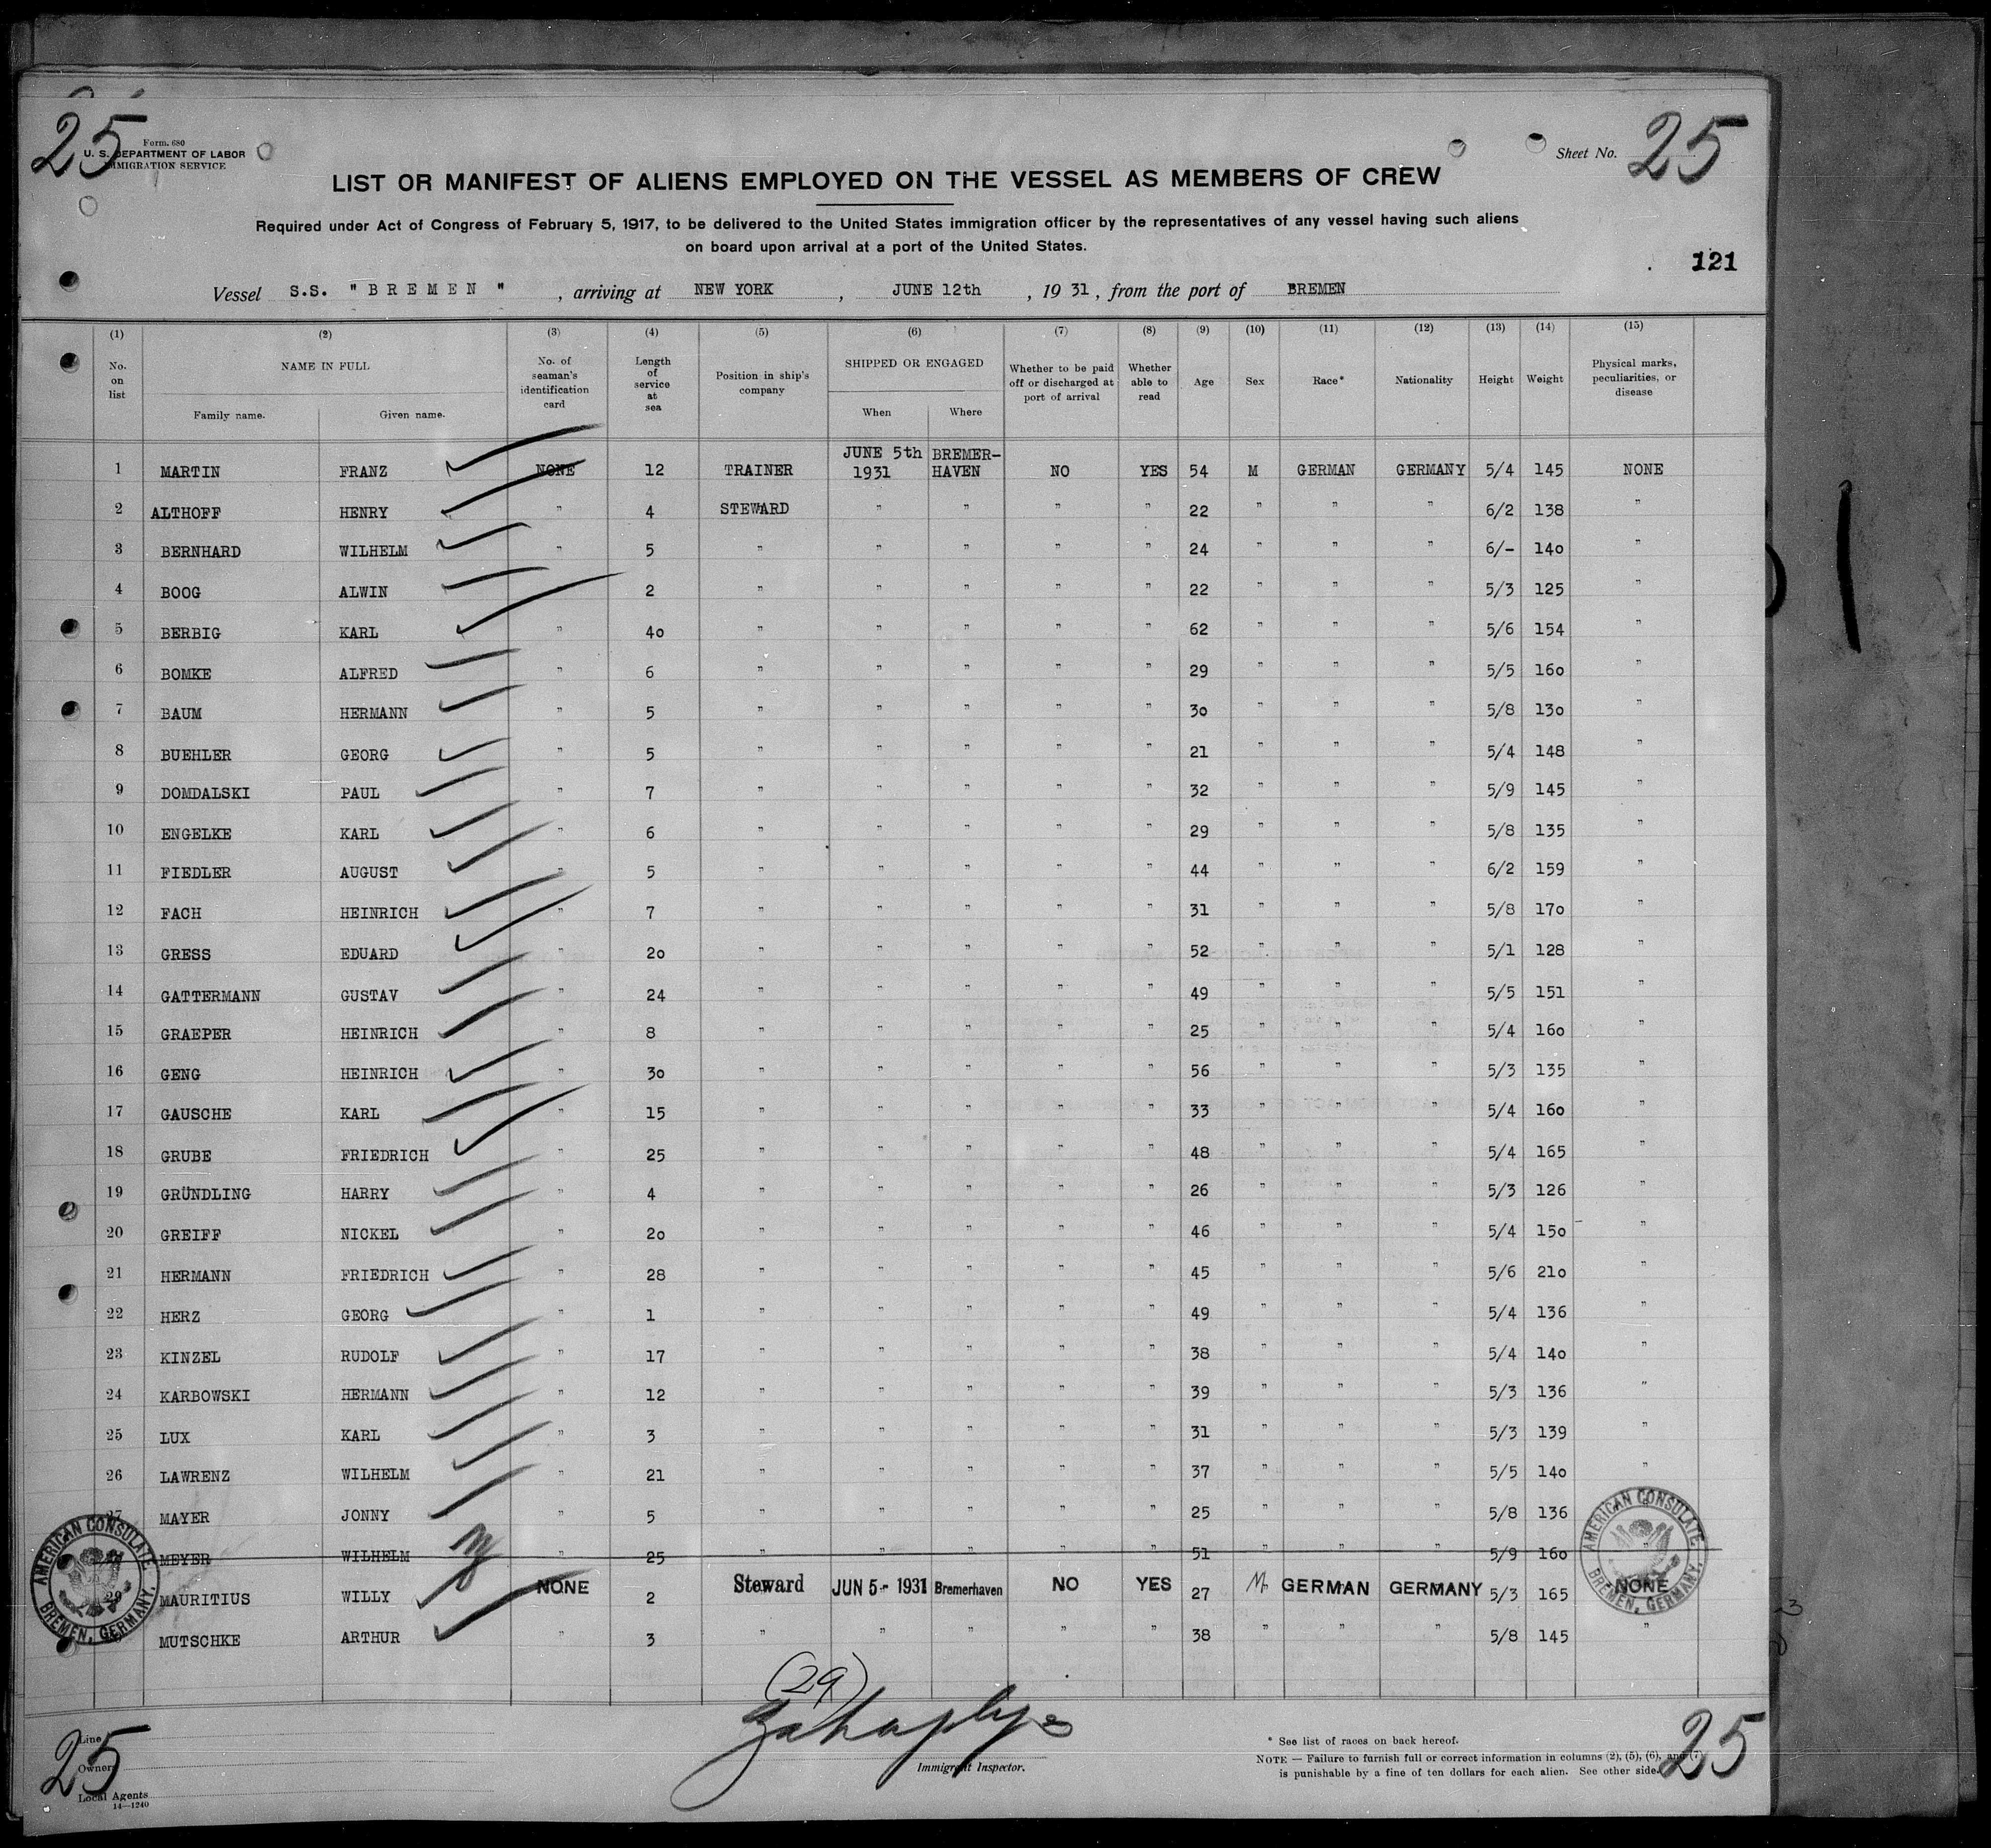 25
25
Form. 680
U. S. DEPARTMENT OF LABOR
IMMIGRATION SERVICE
Sheet No.
LIST OR MANIFEST OF ALIENS EMPLOYED ON THE VESSEL AS MEMBERS OF CREW
Required under Act of Congress of February 5, 1917, to be delivered to the United States immigration officer by the representatives of any vessel having such aliens
on board upon arrival at a port of the United States.
121
Vessel S.S. "BREMEN", arriving at NEW YORK, JUNE 12th, 1931, from the port of BREMEN
(1) (2) (3) (4) (5) (6) (7) (8) (9) (10) (11) (12) (13) (14) (15)
No. on list NAME IN FULL Family name. Given name. No. of seaman's identification card Length of service at sea Position in ship's company SHIPPED OR ENGAGED When Where Whether to be paid off or discharged at port of arrival Whether able to read Age Sex Race* Nationality Height Weight Physical marks, peculiarities, or disease
1 MARTIN FRANZ NONE 12 TRAINER JUNE 5th 1931 BREMER-HAVEN NO YES 54 M GERMAN GERMANY 5/4 145 NONE
2 ALTHOFF HENRY " 4 STEWARD " " " " 22 " " " 6/2 138 "
3 BERNHARD WILHELM " 5 " " " " " 24 " " " 6/- 140 "
4 BOOG ALWIN 2 " " " " " 22 " " " 5/3 125 "
5 BERBIG KARL " 40 " " " " " 62 " " " 5/6 154 "
6 BOMKE ALFRED " 6 " " " " " 29 " " " 5/5 160 "
7 BAUM HERMANN " 5 " " " " " 30 " " " 5/8 130 "
8 BUEHLER GEORG " 5 " " " " " 21 " " " 5/4 148 "
9 DOMDALSKI PAUL " 7 " " " " " 32 " " " 5/9 145 "
10 ENGELKE KARL " 6 " " " " " 29 " " " 5/8 135 "
11 FIEDLER AUGUST " 5 " " " " " 44 " " " 6/2 159 "
12 FACH HEINRICH " 7 " " " " " 31 " " " 5/8 170 "
13 GRESS EDUARD " 20 " " " " " 52 " " " 5/1 128 "
14 GATTERMANN GUSTAV " 24 " " " " " 49 " " " 5/5 151 "
15 GRAEPER HEINRICH " 8 " " " " " 25 " " " 5/4 160 "
16 GENG HEINRICH " 30 " " " " " 56 " " " 5/3 135 "
17 GAUSCHE KARL " 15 " " " " " 33 " " " 5/4 160 "
18 GRUBE FRIEDRICH " 25 " " " " " 48 " " " 5/4 165 "
19 GRÜNDLING HARRY " 4 " " " " " 26 " " " 5/3 126 "
20 GREIFF NICKEL " 20 " " " " " 46 " " " 5/4 150 "
21 HERMANN FRIEDRICH " 28 " " " " " 45 " " " 5/6 210 "
22 HERZ GEORG " 1 " " " " " 49 " " " 5/4 136 "
23 KINZEL RUDOLF " 17 " " " " " 38 " " " 5/4 140 "
24 KARBOWSKI HERMANN " 12 " " " " " 39 " " " 5/3 136 "
25 LUX KARL " 3 " " " " " 31 " " " 5/3 139 "
26 LAWRENZ WILHELM " 21 " " " " " 37 " " " 5/5 140 "
27 MAYER JONNY " 5 " " " " " 25 " " " 5/8 136 "
MEYER WILHELM " 25 " " " " " 51 " " " 5/9 160 "
29 MAURITIUS WILLY NONE 2 Steward JUN 5- 1931 Bremerhaven NO YES 27 M GERMAN GERMANY 5/3 165 NONE
MUTSCHKE ARTHUR " 3 " " " " " 38 " " " 5/8 145 "
AMERICAN CONSULATE, BREMEN, GERMANY.
AMERICAN CONSULATE, BREMEN, GERMANY.
(29)
Immigrant Inspector.
Line
Owner
Local Agents
14—1240
25
* See list of races on back hereof.
NOTE — Failure to furnish full or correct information in columns (2), (5), (6), and (7)
is punishable by a fine of ten dollars for each alien. See other side.
25